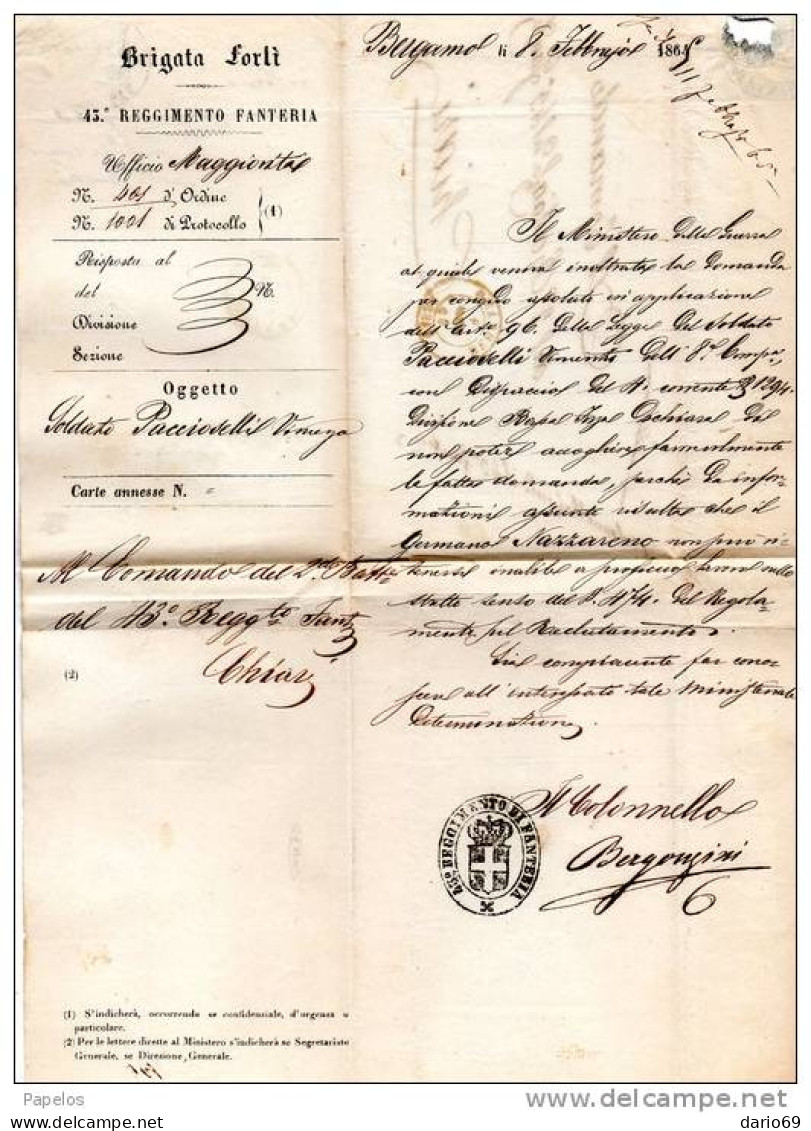 Brigata Forlì
43.° REGGIMENTO FANTERIA
Ufficio Maggiorità
N. 401 d'Ordine
N. 1001 di Protocollo (1)
Risposta al
del N.
Divisione
Sezione
Oggetto
Soldato
Carte annesse N.
Al Comando del 2do Battne
del 43° Reggto Fant
(2) Chiari
Bergamo li 8 Febbrajo 1865
11 Febbrajo 65
Il Ministero della Guerra
al quale veniva inoltrata la domanda
per congedo assoluto in applicazione
dell'arto 96 della Legge del Soldato
dell' 8a Compa
con Dispaccio del 4 corrente N 1294
Divisione dichiara di
non poter accogliere favorevolmente
la fatta domanda, perchè da infor-
mazioni assunte risulta che il
germano Nazzareno non può ri-
tenersi inabile a proficuo lavoro nello
stretto senso del § 474 del Regola-
mento sul Reclutamento.
Sia compiacente far cono-
scere all'interessato tale Ministeriale
Determinazione.
Il Colonnello
Bergonzini
43° REGGIMENTO DI FANTERIA
(1) S'indicherà, occorrendo se confidenziale, d'urgenza o
particolare.
(2) Per le lettere dirette al Ministero s'indicherà se Segretariato
Generale, se Direzione Generale.
Papelos
delcampe.net
dario69